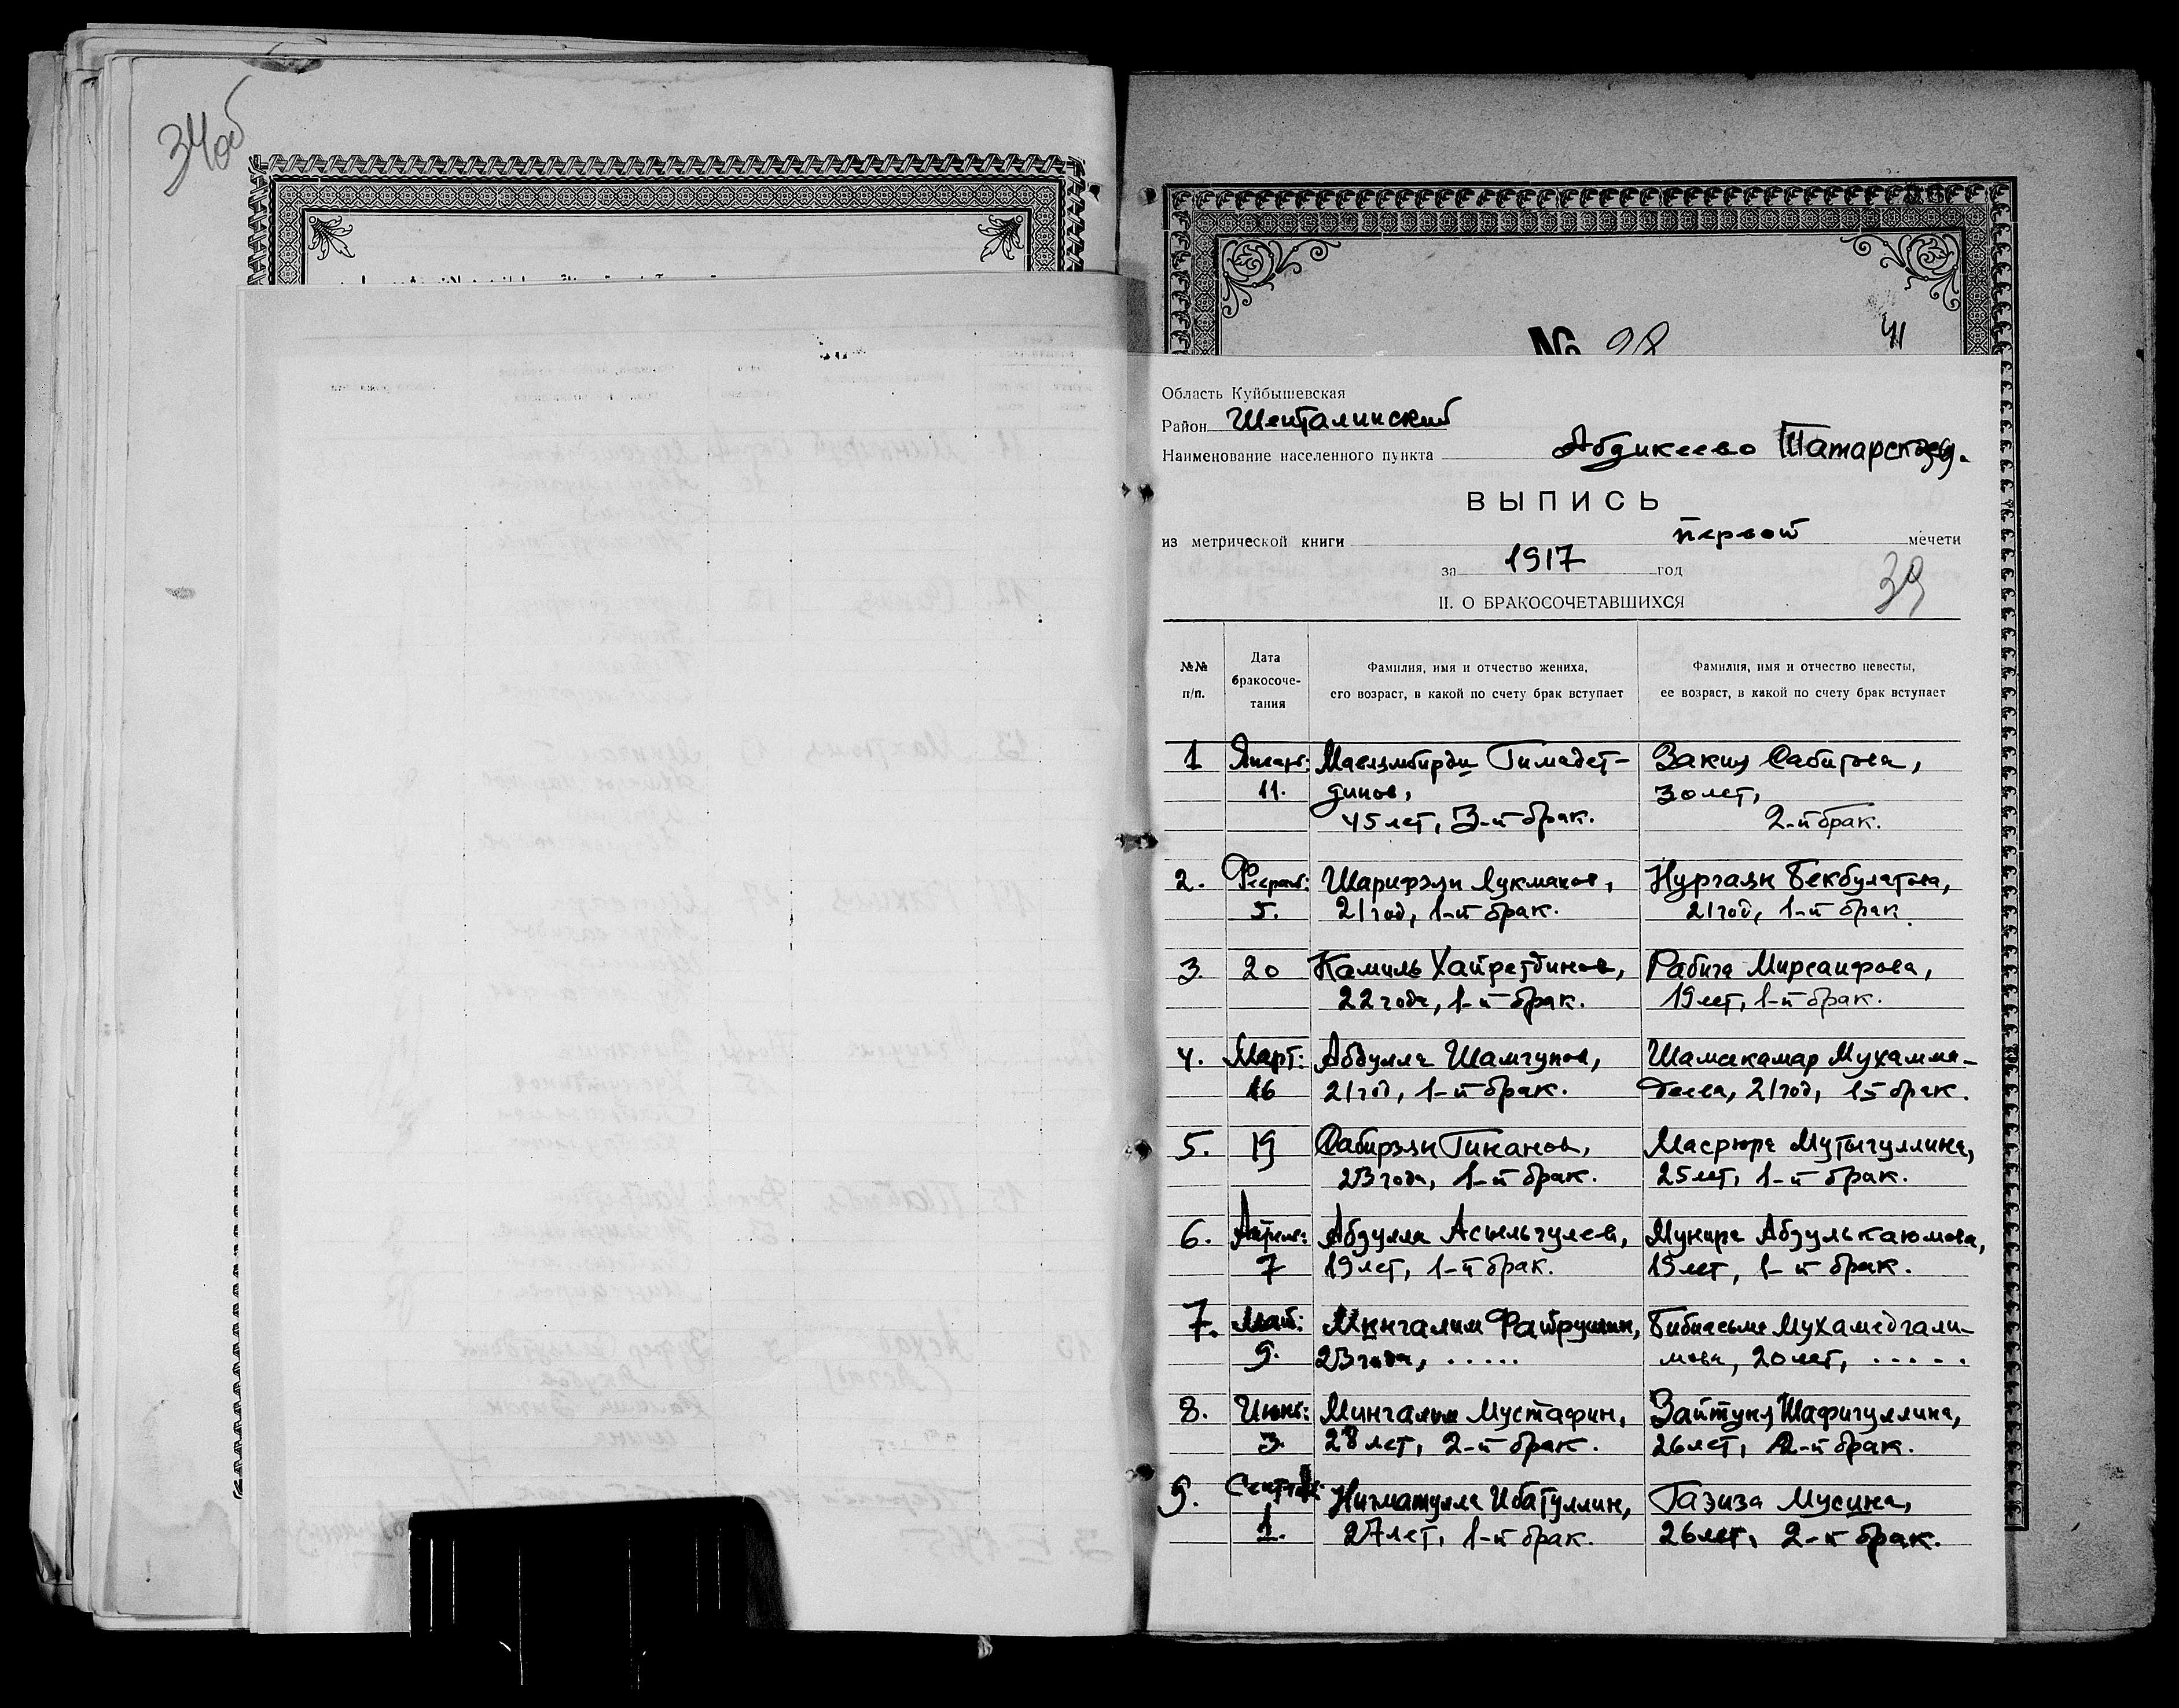 34об
№ 28
41
Область Куйбышевская
Район Шенталинский
Наименование населенного пункта Абдикеево Татарское
ВЫПИСЬ
из метрической книги первой мечети
за 1917 год
39
II. О БРАКОСОЧЕТАВШИХСЯ
№№ п/п.
Дата бракосоче-
тания
Фамилия, имя и отчество жениха,
его возраст, в какой по счету брак вступает
Фамилия, имя и отчество невесты,
ее возраст, в какой по счету брак вступает
1 Январь: Мавлимбирди Гимадет- Закия Сабитова,
11. динов, 30 лет,
45 лет, 3-й брак. 2-й брак.
2. Феврал: Шарифзян Лукманов, Нургаян Бекбулатова,
5. 21 год, 1-й брак. 21 год, 1-й брак.
3. 20 Камиль Хайретдинов, Рабига Мирсаифова,
22 года, 1-й брак. 19 лет, 1-й брак.
4. Март: Абдулла Шамгунов, Шамсикамар Мухамма-
16 21 год, 1-й брак. деева, 21 год, 1 брак.
5. 19 Сабирзян Гиканов, Масрюра Мутыгуллина,
23 года, 1-й брак. 25 лет, 1-й брак.
6. Апрель: Абдулла Асылгулов, Мунира Абдулькаюмова,
7 19 лет, 1-й брак. 19 лет, 1-й брак.
7. Май: Мингалим Файрушин, Бибиасьма Мухамедгали-
9. 23 года, ..... мова, 20 лет, .....
8. Июнь: Мингалим Мустафин, Зайтуня Шафигуллина,
3. 28 лет, 2-й брак. 26 лет, 2-й брак.
9. Сентяб: Нигматулла Ибатуллин, Газиза Мусина,
1. 27 лет, 1-й брак. 26 лет, 2-й брак.